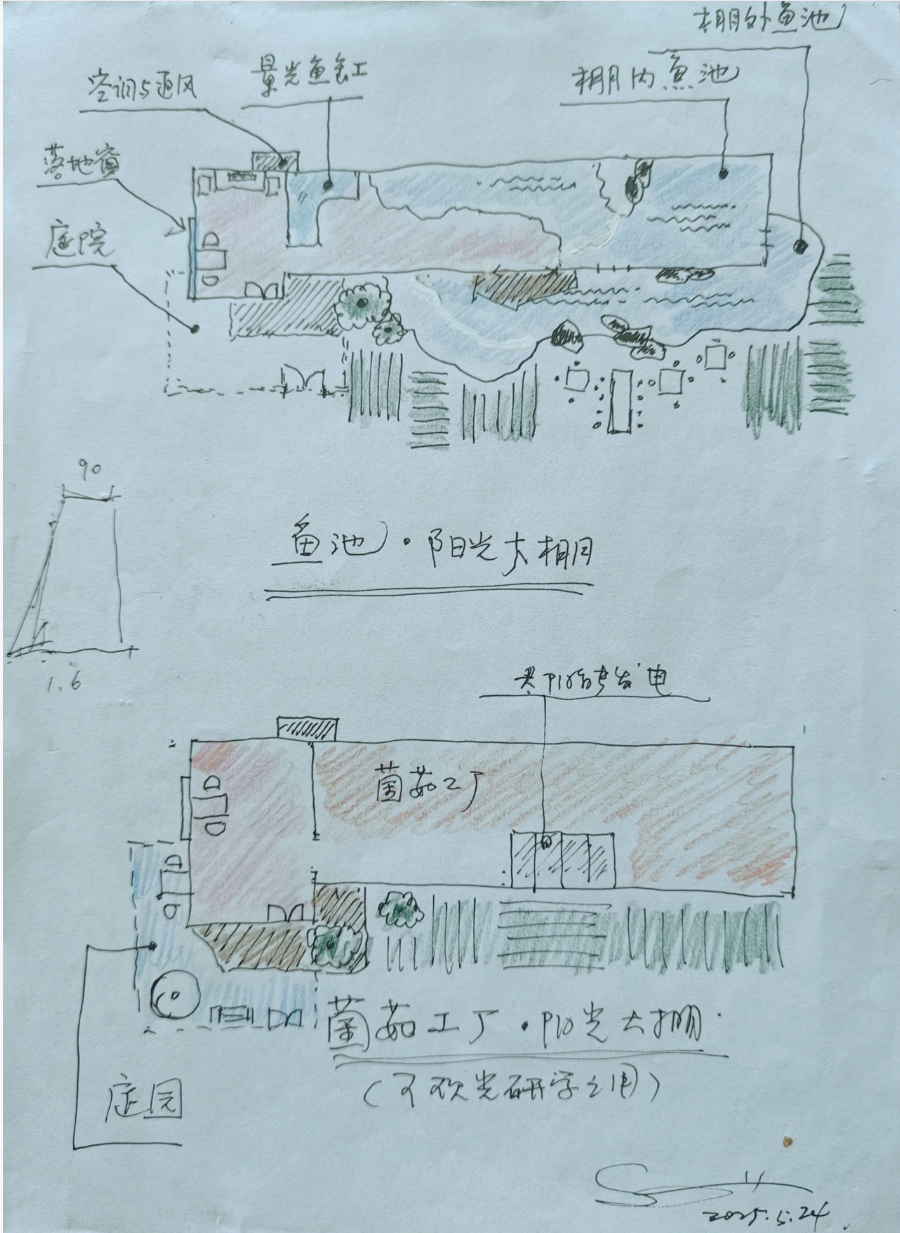 棚外鱼池
景光鱼缸
棚内鱼池
空调与通风
落地窗
庭院
90
鱼池·阳光大棚
1.6
发电
菌菇工厂
菌菇工厂·阳光大棚
(可观光研学之用)
庭园
2025.5.24